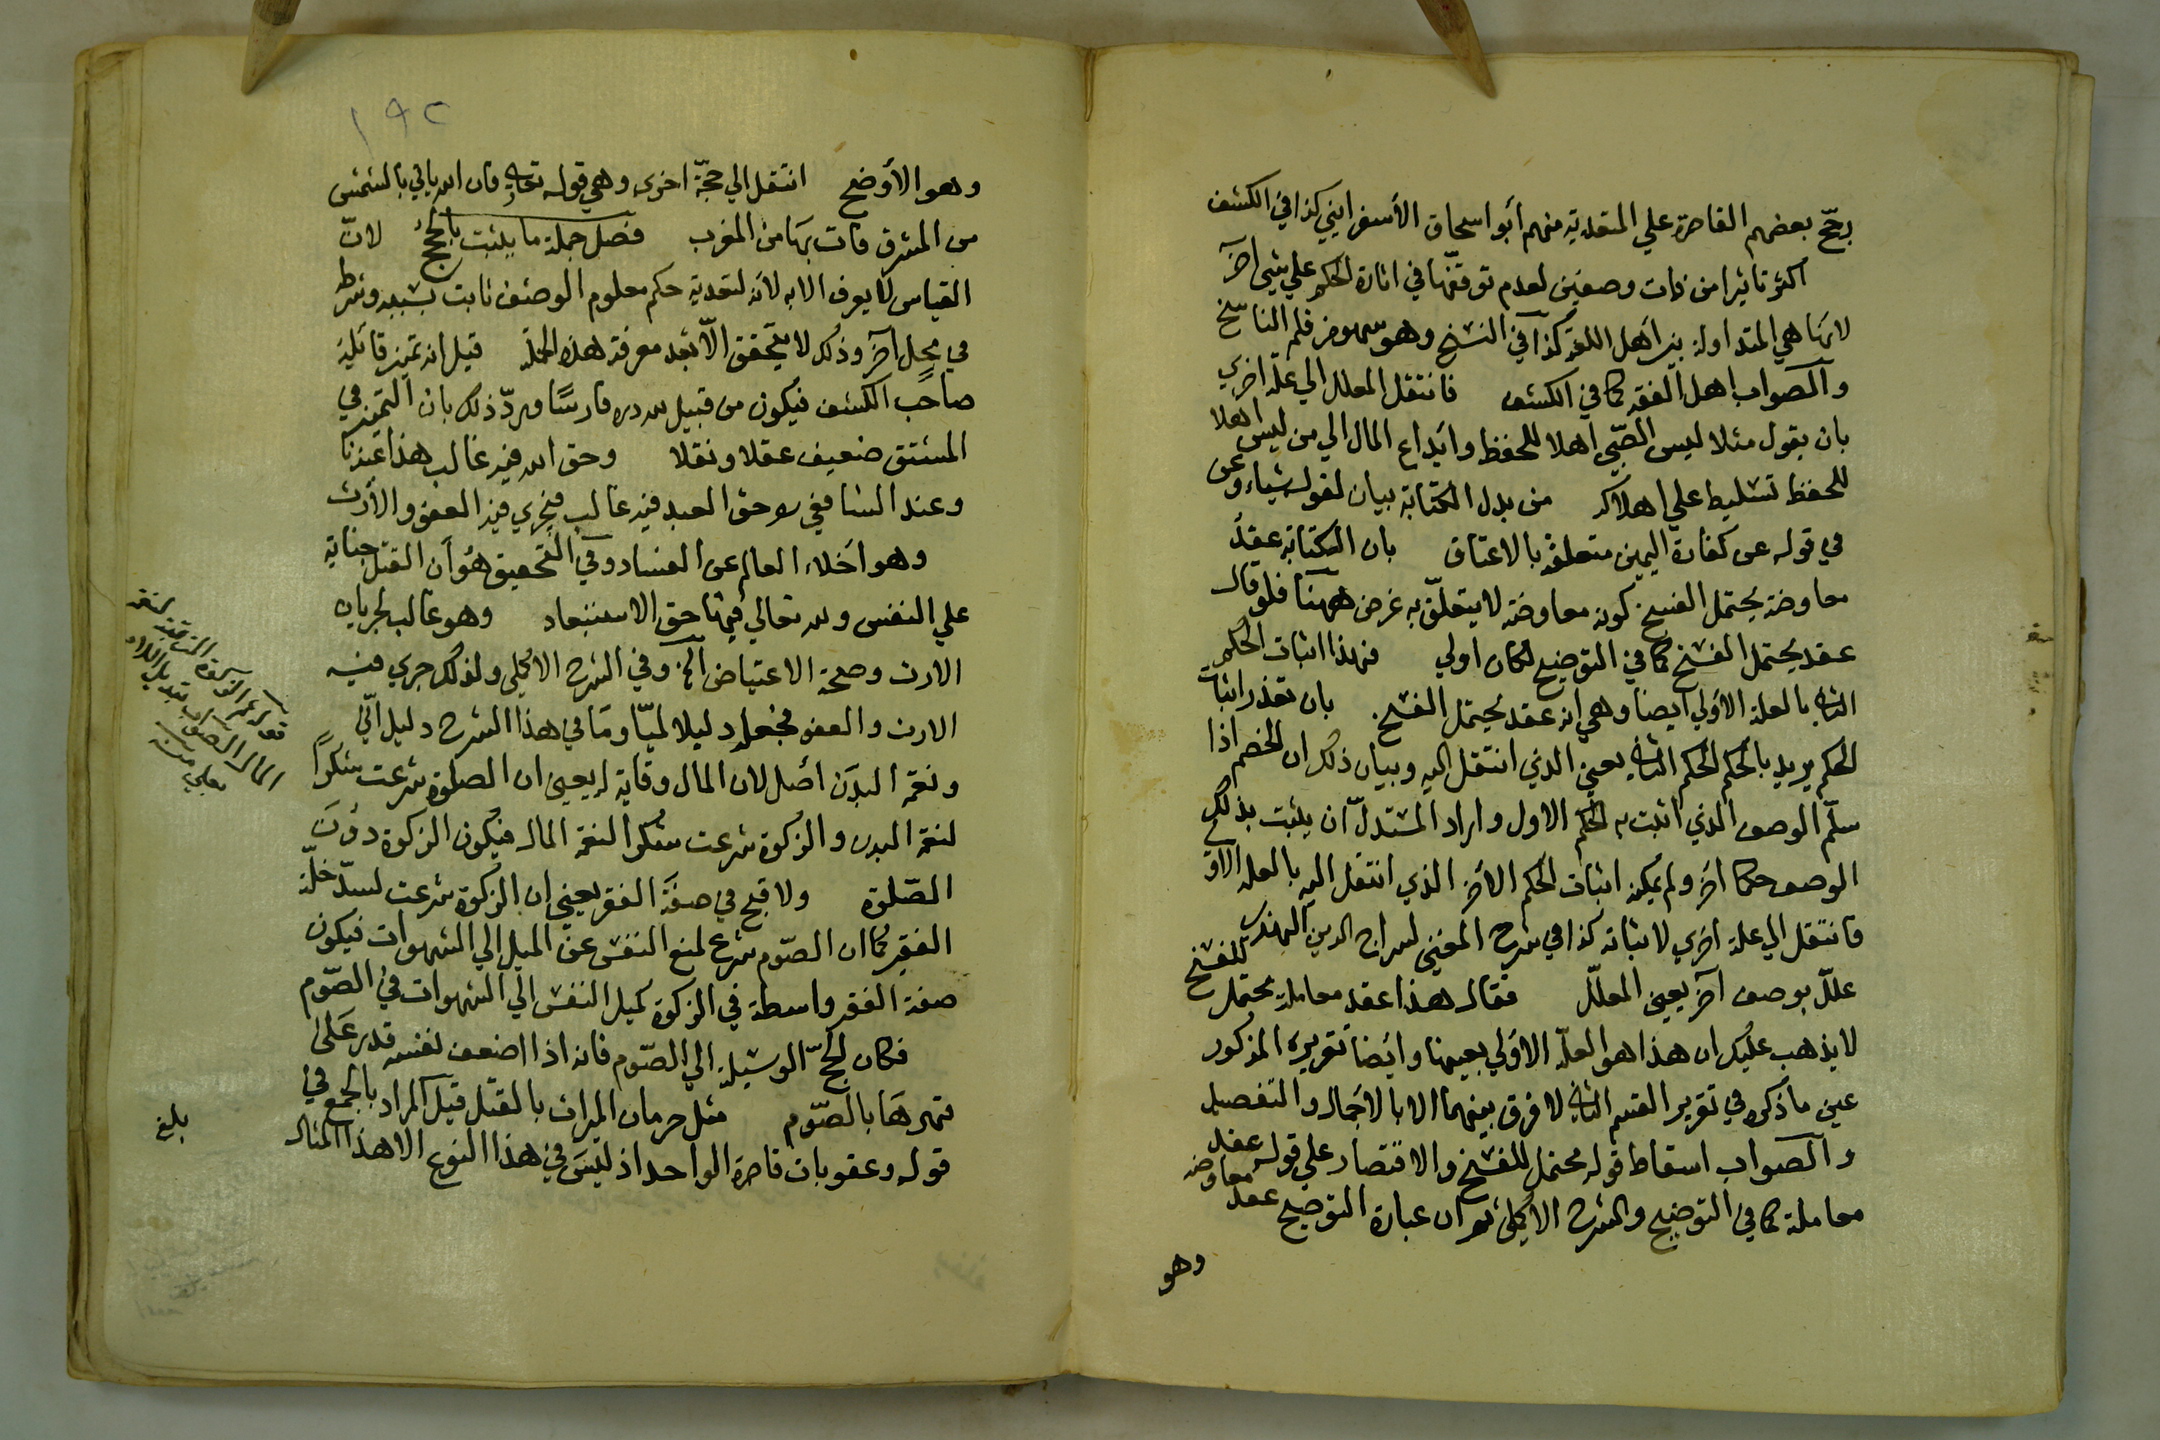 رجّح بعضهم القاصرة علي المتعدية منهم أبو اسحاق الأسفرايني كذا في الكشف
اكثر تاثيرا من ذات وصفين لعدم توقفها في اثارة الحكم علي شي آخر
لانها هي المتداولة بين اهل اللغة كذا في النسخ وهو سهو من قلم الناسخ
والصواب اهل الفقه كما في الكشف فانتقل المعلل الي علة اخري
بان يقول مثلا ليس الصّبي اهلا للحفظ وايداع المال الي من ليس اهلا
للحفظ تسليط علي اهلاكه من بدل الكتابة بيان لقوله شياء وعن
في قوله عن كفارة اليمين متعلق بالاعتاق بان الكتابة عقد
معاوضة يحتمل الفسخ كونه معاوضة لا يتعلّق به غرض ههنا فلو قال
عقد يحتمل الفسخ كما في التوضيح لكان اولي فهذا اثبات الحكم
الثاني بالعلة الأولي ايضا وهي انه عقد يحتمل الفسخ بان تعذر اثبات
الحكم يريد بالحكم الحكم الثاني يعني الذي انتقل اليه وبيان ذلك ان الخصم اذا
سلّم الوصف الذي اثبت به الحكم الاول واراد المستدلّ ان يثبت بذلك
الوصف حكما آخر ولم يمكنه اثبات الحكم الآخر الذي انتقل اليه بالعلة الاولي
فانتقل الي علة اخري لاثباته كذا في شرح المغني لسراج الدين الهندي
علّل بوصف آخر يعني المعلّل فقال هذا عقد معاملة يحتمل للفسخ
لا يذهب عليك ان هذا هو العلة الاولي بعينها وايضا تقريره المذكور
عين ما ذكره في تقرير القسم الثاني لا فرق بينهما الا بالاجمال والتفصيل
والصواب اسقاط قوله محتمل للفسخ والاقتصار علي قوله عقد
معاملة كما في التوضيح والشرح الاكملي نعم ان عبارة التوضيح عقد معاوضه
وهو
١٩٢
وهو الأوضح انتقل الي حجّة اخري وهي قوله تعالي فان الله ياتي بالشمس
من المشرق فات بها من المغرب فصل جملة ما يثبت بالحجج لانّ
القياس لا يعرف الا به لانه لتعدية حكم معلوم الوصف ثابت بسببه وشرطه
في محل آخر وذلك لا يتحقق الّا بعد معرفة هذه الجملة قيل انه تميز قائله
صاحب الكشف فيكون من قبيل لله دره فارسًا ويردّ ذلك بان التميز في
المشتق ضعيف عقلا ونقلا وحق الله فيه غالب هذا عندنا
وعند الشافعي رح حق العبد فيه غالب فيجري فيه العفو والأرث
وهو اخلاء العالم عن الفساد وفي التحقيق هو أن القتل جناية
علي النفس ولله تعالي فيها حق الاستبعاد وهو غالب لجريان
الارث وصحة الاعتياض الخ وفي الشرح الاكملي ولذلك جري فيه
الارث والعفو فجعله دليلا لميّا وما في هذا الشرح دليل انّي
ونعمة البدن اصل لان المال وقاية له يعني ان الصلوة شرعت شكرًا
لنعمة البدن والزكوة شرعت شكرا لنعمة المال فيكون الزكوة دون
الصّلوة ولا قبح في صفة الفقر يعني ان الزكوة شرعت لسدّ خلّة
الفقير كما ان الصّوم شرع لمنع النفس عن الميل الي الشهوات فيكون
صفة الفقر واسطة في الزكوة كميل النفس الي الشهوات في الصّوم
فكان الحجّ الوسيلة الي الصّوم فانه اذا اضعف نفسه قدر علي
قهرها بالصّوم مثل حرمان الميراث بالقتل قيل المراد بالجمع في
قوله وعقوبات قاصرة الواحد اذ ليس في هذا النوع الا هذا المثال
المال الصواب
بلغ